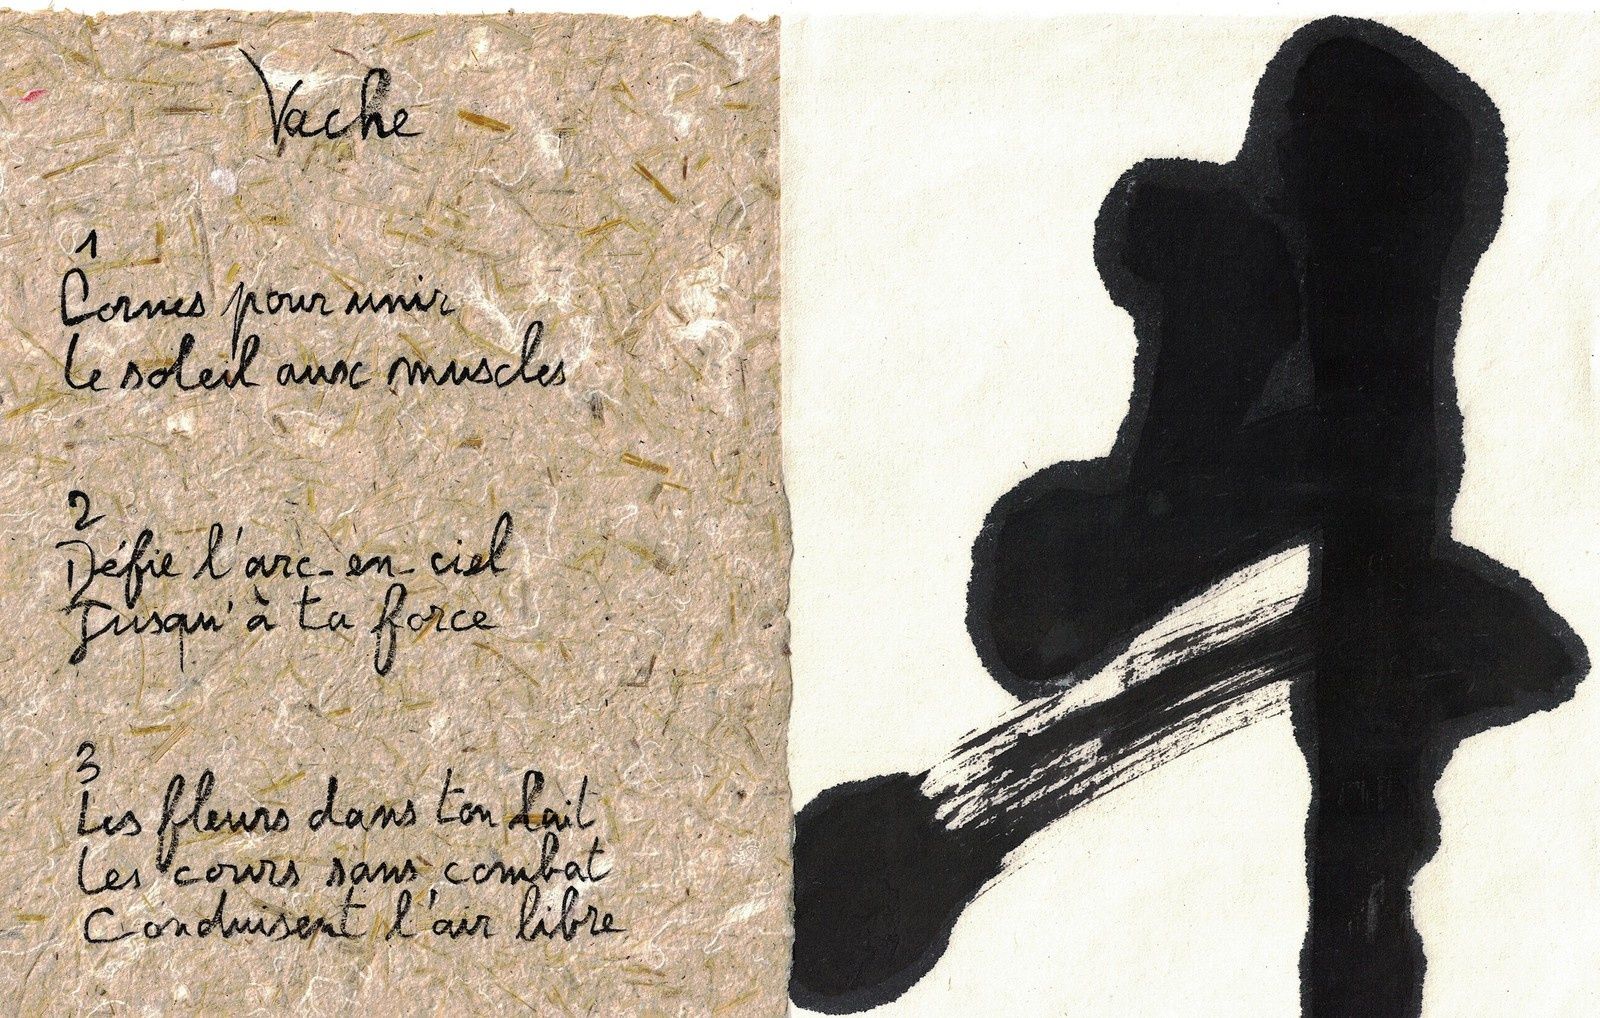 Vache
1
Cornes pour unir
le soleil aux muscles
2
Défie l'arc-en-ciel
Jusqu'à ta force
3
Les fleurs dans ton lait
Les cours sans combat
Conduisent l'air libre